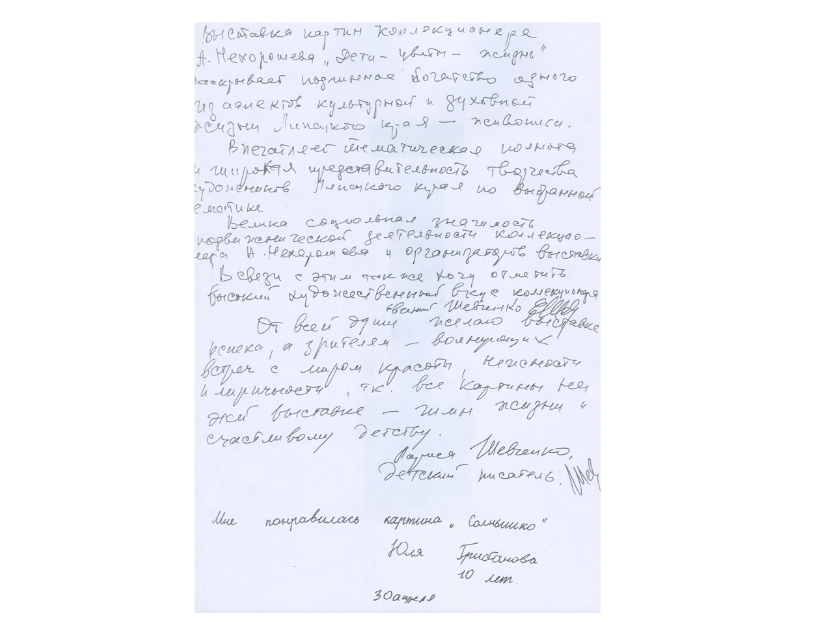 Выставка картин коллекционера
А. Нехорошева „Дети – цветы – жизнь"
раскрывает подлинное богатство одного
из аспектов культурной и духовной
жизни Липецкого края – живописи.
Впечатляет тематическая полнота
и широкая представительность творчества
художников Липецкого края по выбранной
тематике.
Велика социальная значимость
подвижнической деятельности коллекцио-
нера А. Нехорошева и организаторов выставки
В связи с этим также хочу отметить
высокий художественный вкус коллекционера
Евгений Шевченко
От всей души желаю выставке
успеха, а зрителям – волнующих
встреч с миром красоты, нежности
и лиричности, т.к. все картины на
этой выставке – гимн жизни и
счастливому детству.
Лариса Шевченко,
детский писатель.
Мне понравилась картина „Солнышко"
Юля Грибанова
10 лет.
30 апреля